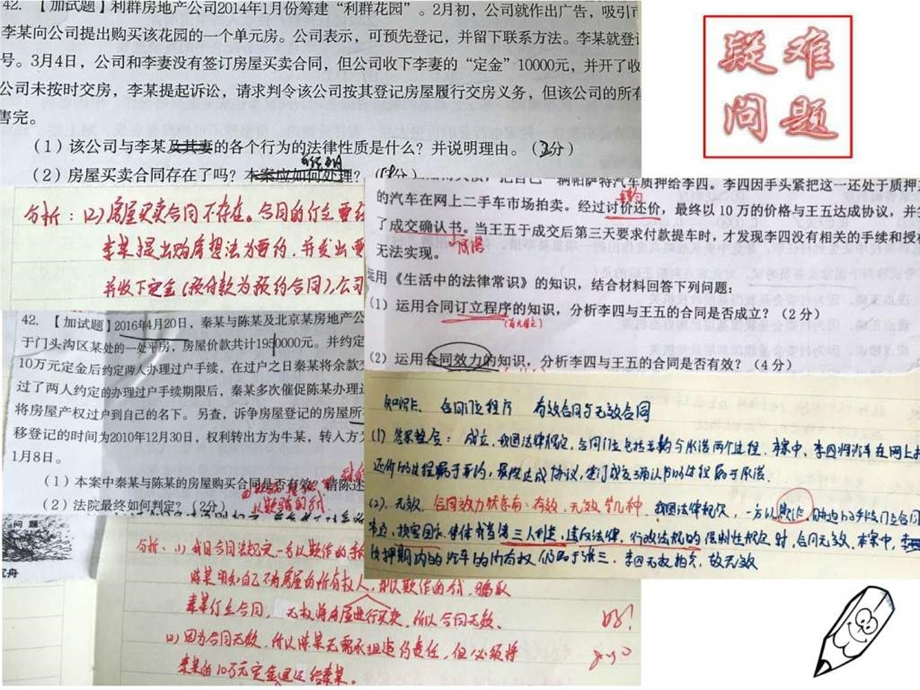 42. 【加试题】利群房地产公司2014年1月份筹建“利群花园”。2月初，公司就作出广告，吸引
李某向公司提出购买该花园的一个单元房。公司表示，可预先登记，并留下联系方法。李某就登
号。3月4日，公司和李妻没有签订房屋买卖合同，但公司收下李妻的“定金”10000元，并开了收
公司未按时交房，李某提起诉讼，请求判令该公司按其登记房屋履行交房义务，但该公司的所有
售完。
（1）该公司与李某及其妻的各个行为的法律性质是什么？并说明理由。（3分）
（2）房屋买卖合同存在了吗？本案应如何处理？
疑难
问题
分析：(2)房屋买卖合同不存在。合同的订立要
李某提出购房想法为要约，并发出要
并收下定金(预付款为预约合同)，公司
把自己一辆帕萨特汽车质押给李四。李四因手头紧把这一还处于质押
的汽车在网上二手车市场拍卖。经过讨价还价，最终以10万的价格与王五达成协议，并
了成交确认书。当王五于成交后第三天要求付款提车时，才发现李四没有相关的手续和授
无法实现。
运用《生活中的法律常识》的知识，结合材料回答下列问题：
（1）运用合同订立程序的知识，分析李四与王五的合同是否成立？（2分）
（2）运用合同效力的知识，分析李四与王五的合同是否有效？（4分）
42. 【加试题】2016年4月20日，秦某与陈某及北京某房地产公
于门头沟区某处的一处平房，房屋价款共计1950000元。并约
10万元定金后约定两人办理过户手续，在过户之日秦某将余款
过了两人约定的办理过户手续期限后，秦某多次催促陈某办理
将房屋产权过户到自己的名下。另查，诉争房屋登记的房屋所
移登记的时间为2010年12月30日，权利转出方为牛某，转入方为
1月8日。
（1）本案中秦某与陈某的房屋购买合同是否有效？请陈述
（2）法院最终如何判定？（2分）
合同订立程序 有效合同与无效合同
(1) 成立，我国法律规定，合同订立包括要约与承诺两个过程。本案中，李四将汽车在网上
还价的过程属于要约，最终达成协议，签订成交确认书的过程属于承诺。
(2). 无效。合同效力状态有：有效、无效等几种。我国法律规定，一方以欺诈
损害国家、集体或者第三人利益，违反法律、行政法规的强制性规定时，合同无效。本案中，李
质押期内的汽车的所有权仍属于张三，李四无权拍卖，故无效
分析：(1)我国合同法规定一方以欺诈的手
陈某明知自己不为房屋的所有权人，却以欺诈的行 骗取
秦某订立合同， 无权将房屋进行买卖，所以合同无效。
(2)因为合同无效，所以陈某无需承担违约责任，但必须将
秦某的10万元定金退还给秦某。